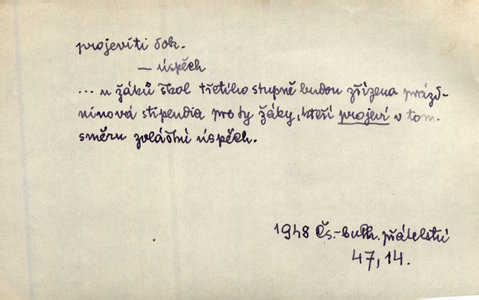 projeviti dok.
— úspěch
... u žáků škol třetího stupně budou zřízena prázd-
ninová stipendia pro ty žáky, kteří projeví v tom
směru zvláštní úspěch.
1948 Čs.-bulh. přátelství
47, 14.